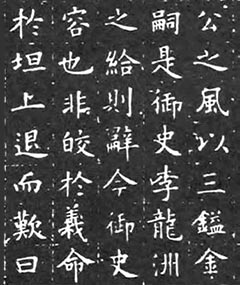 公之風以三鎰金
嗣是御史李龍洲
之給則辭今御史
容也非皎於義命
於坦上退而歎曰